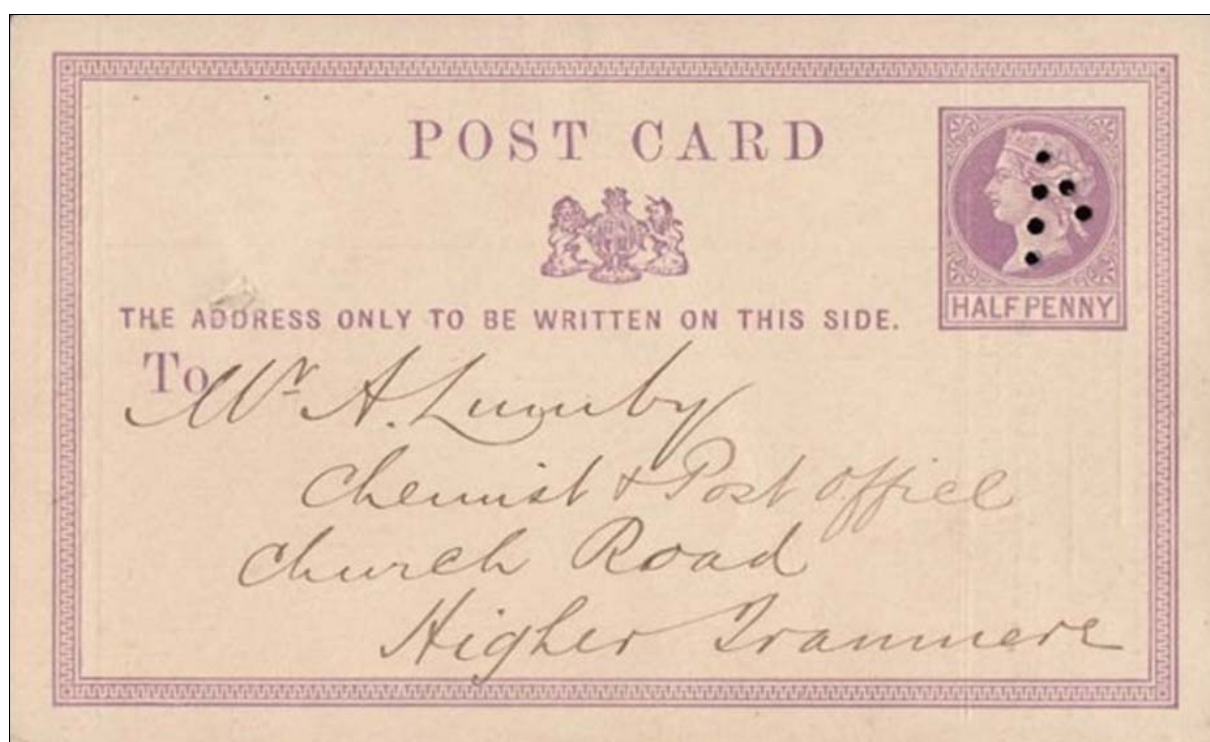 POST CARD
HALFPENNY
THE ADDRESS ONLY TO BE WRITTEN ON THIS SIDE.
To
Mr A. Lumby
Chemist & Post Office
Church Road
Higher Tranmere